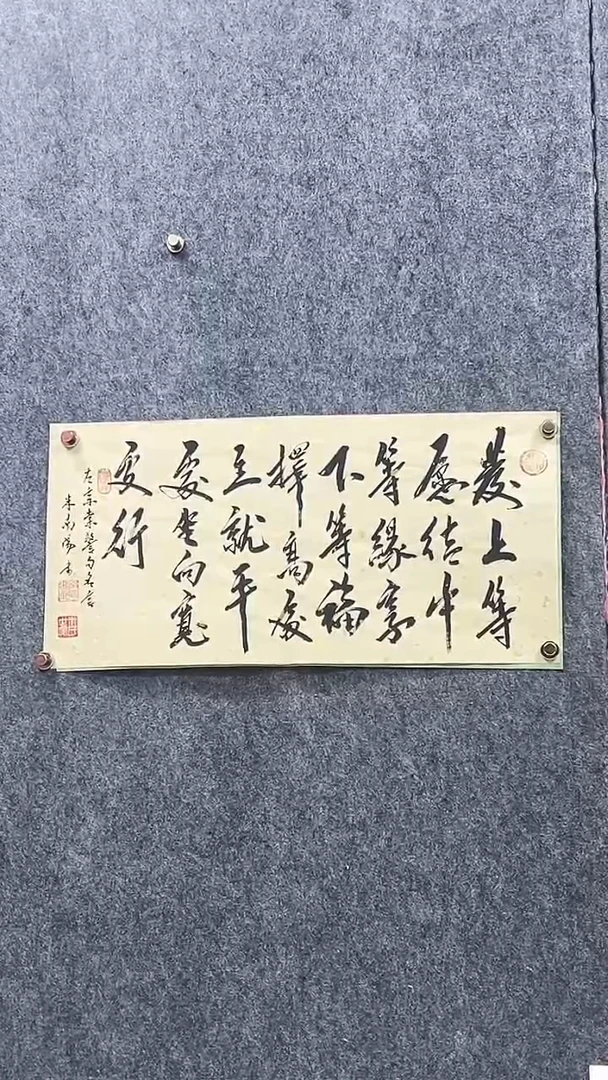 發上等
愿结中
等緣享
下等福
擇高處
立就平
處坐向寬
處行
左宗棠警句名言
朱南陽書